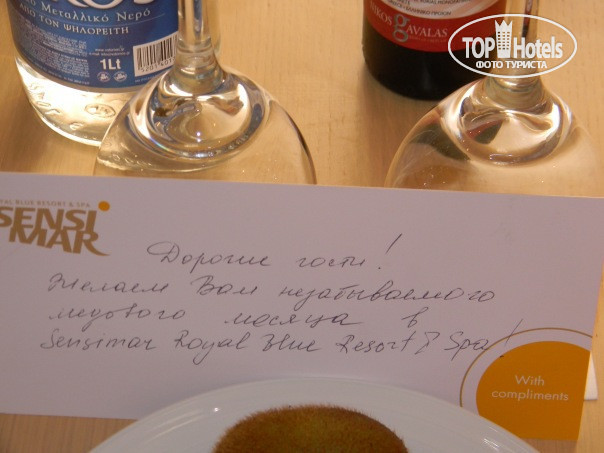 Μεταλλικό Νερό
ΑΠΟ ΤΟΝ ΨΗΛΟΡΕΙΤΗ
1Lt
GAVALAS
TOP Hotels
ФОТО ТУРИСТА
BLUE RESORT & SPA
SENSI
MAR
Дорогие гости!
Желаем Вам незабываемого
медового месяца в
Sensimar Royal Blue Resort & Spa!
With
compliments